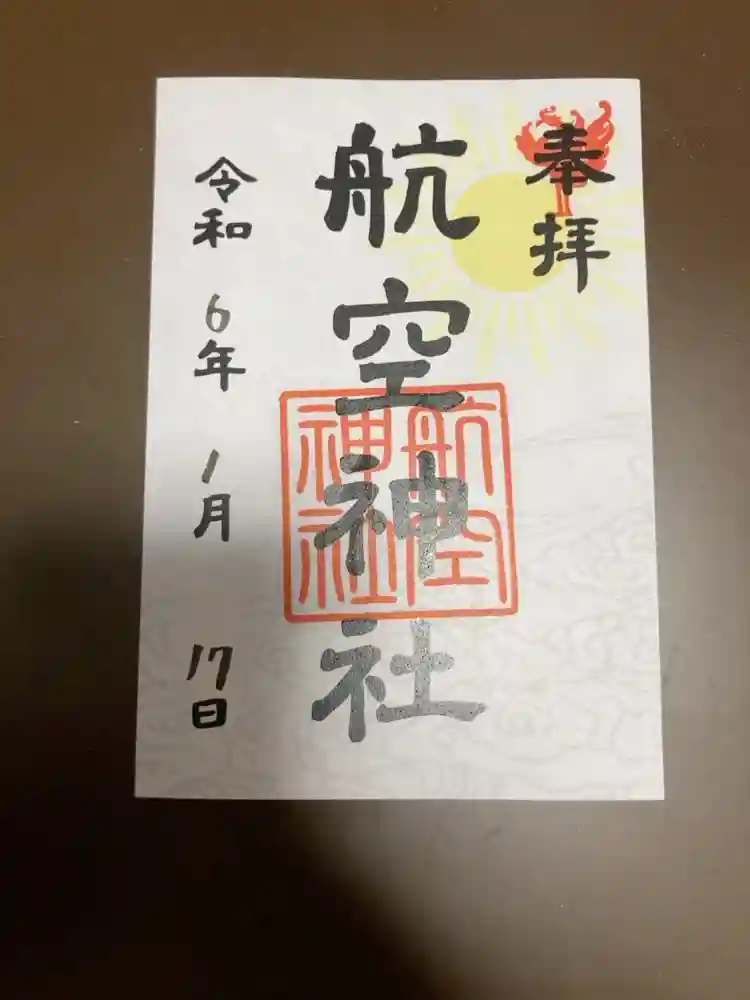 奉拝
航空神社
航空
神社
令和 6年 1月 17日